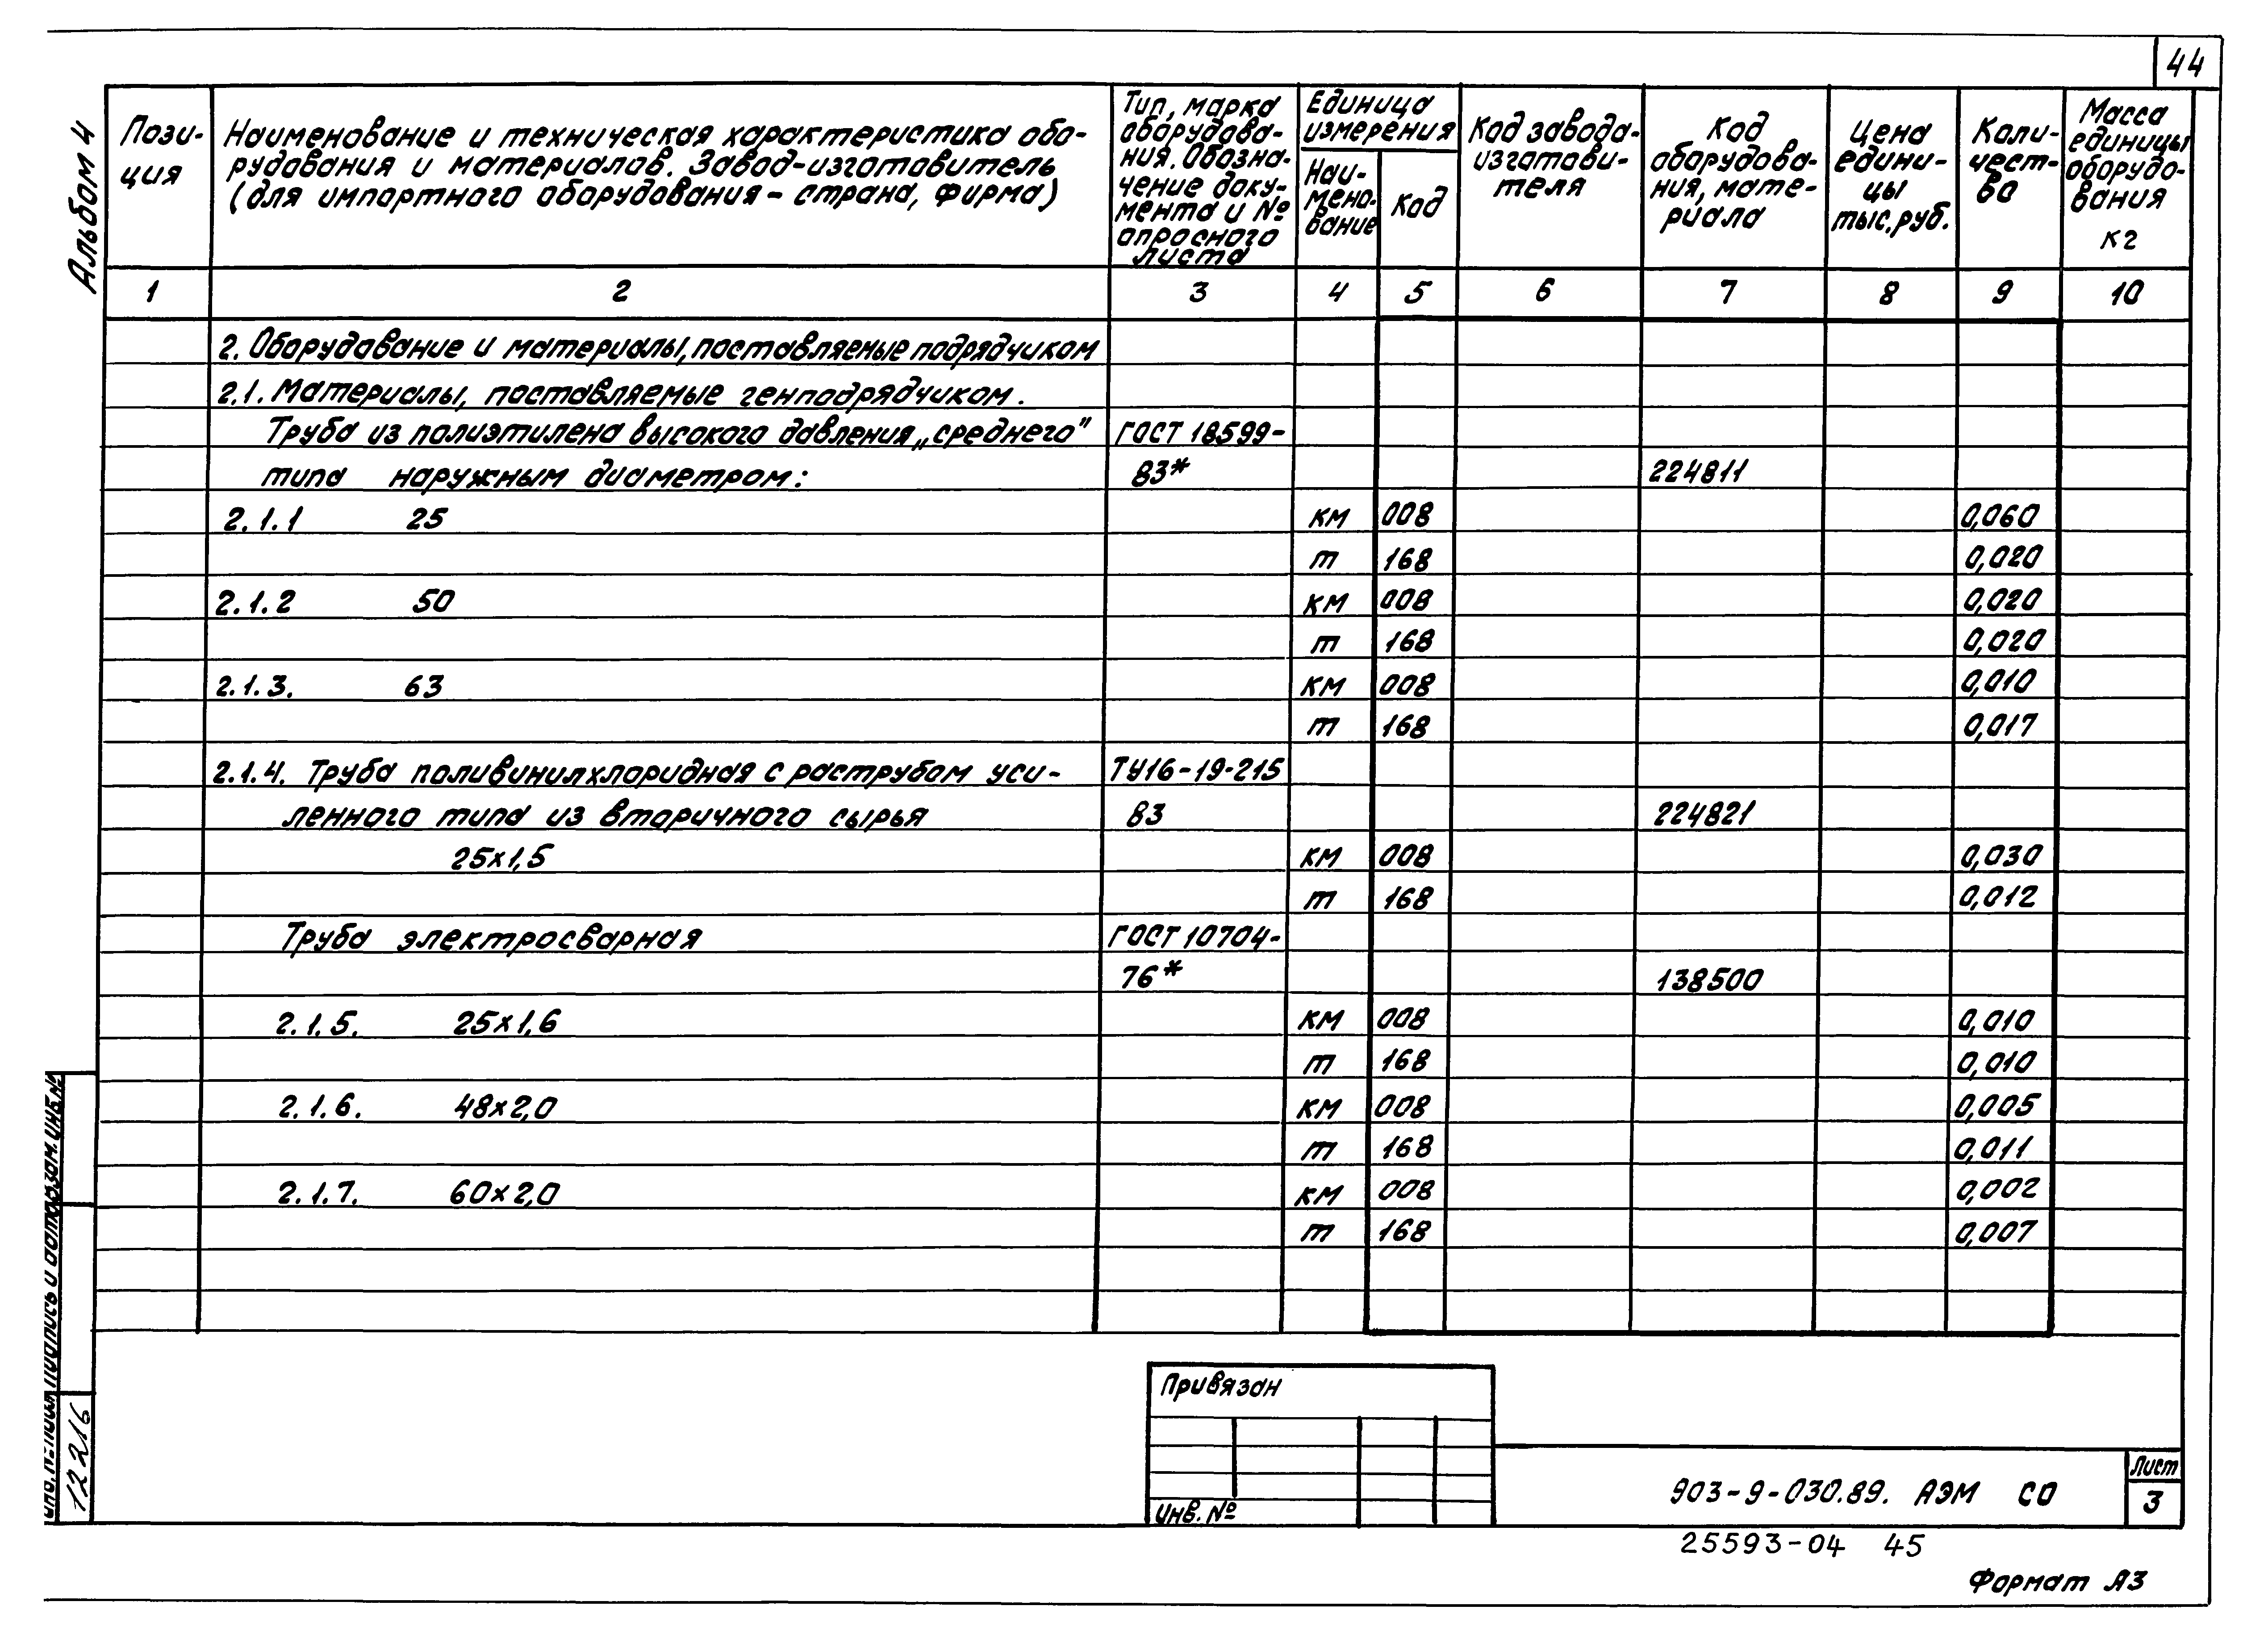 44
Альбом 4
Пози-
ция
Наименование и техническая характеристика обо-
рудования и материалов. Завод-изготовитель
(для импортного оборудования - страна, фирма)
Тип, марка
оборудова-
ния. Обозна-
чение доку-
мента и №
опросного
листа
Единица
измерения
Наи-
мено-
вание
Код
Код завода-
изготови-
теля
Код
оборудова-
ния, мате-
риала
Цена
едини-
цы
тыс. руб.
Коли-
чест-
во
Масса
единицы
оборудо-
вания
кг
1 2 3 4 5 6 7 8 9 10
2. Оборудование и материалы, поставляемые подрядчиком
2.1. Материалы, поставляемые генподрядчиком.
Труба из полиэтилена высокого давления „среднего" ГОСТ 18599-
типа наружным диаметром: 83* 224811
2.1.1 25 км 008 0,060
т 168 0,020
2.1.2 50 км 008 0,020
т 168 0,020
2.1.3. 63 км 008 0,010
т 168 0,017
2.1.4. Труба поливинилхлоридная с раструбом уси- ТУ16-19-215
ленного типа из вторичного сырья 83 224821
25х1,5 км 008 0,030
т 168 0,012
Труба электросварная ГОСТ 10704-
76* 138500
2.1.5. 25х1,6 км 008 0,010
т 168 0,010
2.1.6. 48х2,0 км 008 0,005
т 168 0,011
2.1.7. 60х2,0 км 008 0,002
т 168 0,007
Взам. инв. №
Подпись и дата
Инв. № подл.
12216
Привязан
Инв. №
903-9-030.89. АЭМ СО
Лист
3
25593-04 45
Формат А3